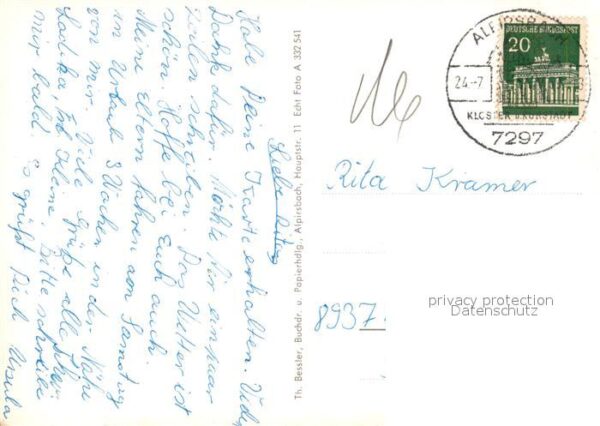 Liebe Rita,
Habe Deine Karte erhalten. Viel
Dank dafür. Möchte Dir ein paar
Zeilen schreiben. Das Wetter ist
schön. Hoffe bei Euch auch.
Meine Eltern fahren am Samstag
in Urlaub 3 Wochen in der Nähe
von Viele Grüße alle
Bitte schreibe
mir bald. Es grüßt Dich Ursula
Th. Bessler, Buchdr. u. Papierhdlg., Alpirsbach, Hauptstr. 11 Echt Foto A 332 541
ALPIRSBACH
24.-7
KLOSTER U. KURSTADT
7297
DEUTSCHE BUNDESPOST
20
Rita Kramer
8937
privacy protection
Datenschutz